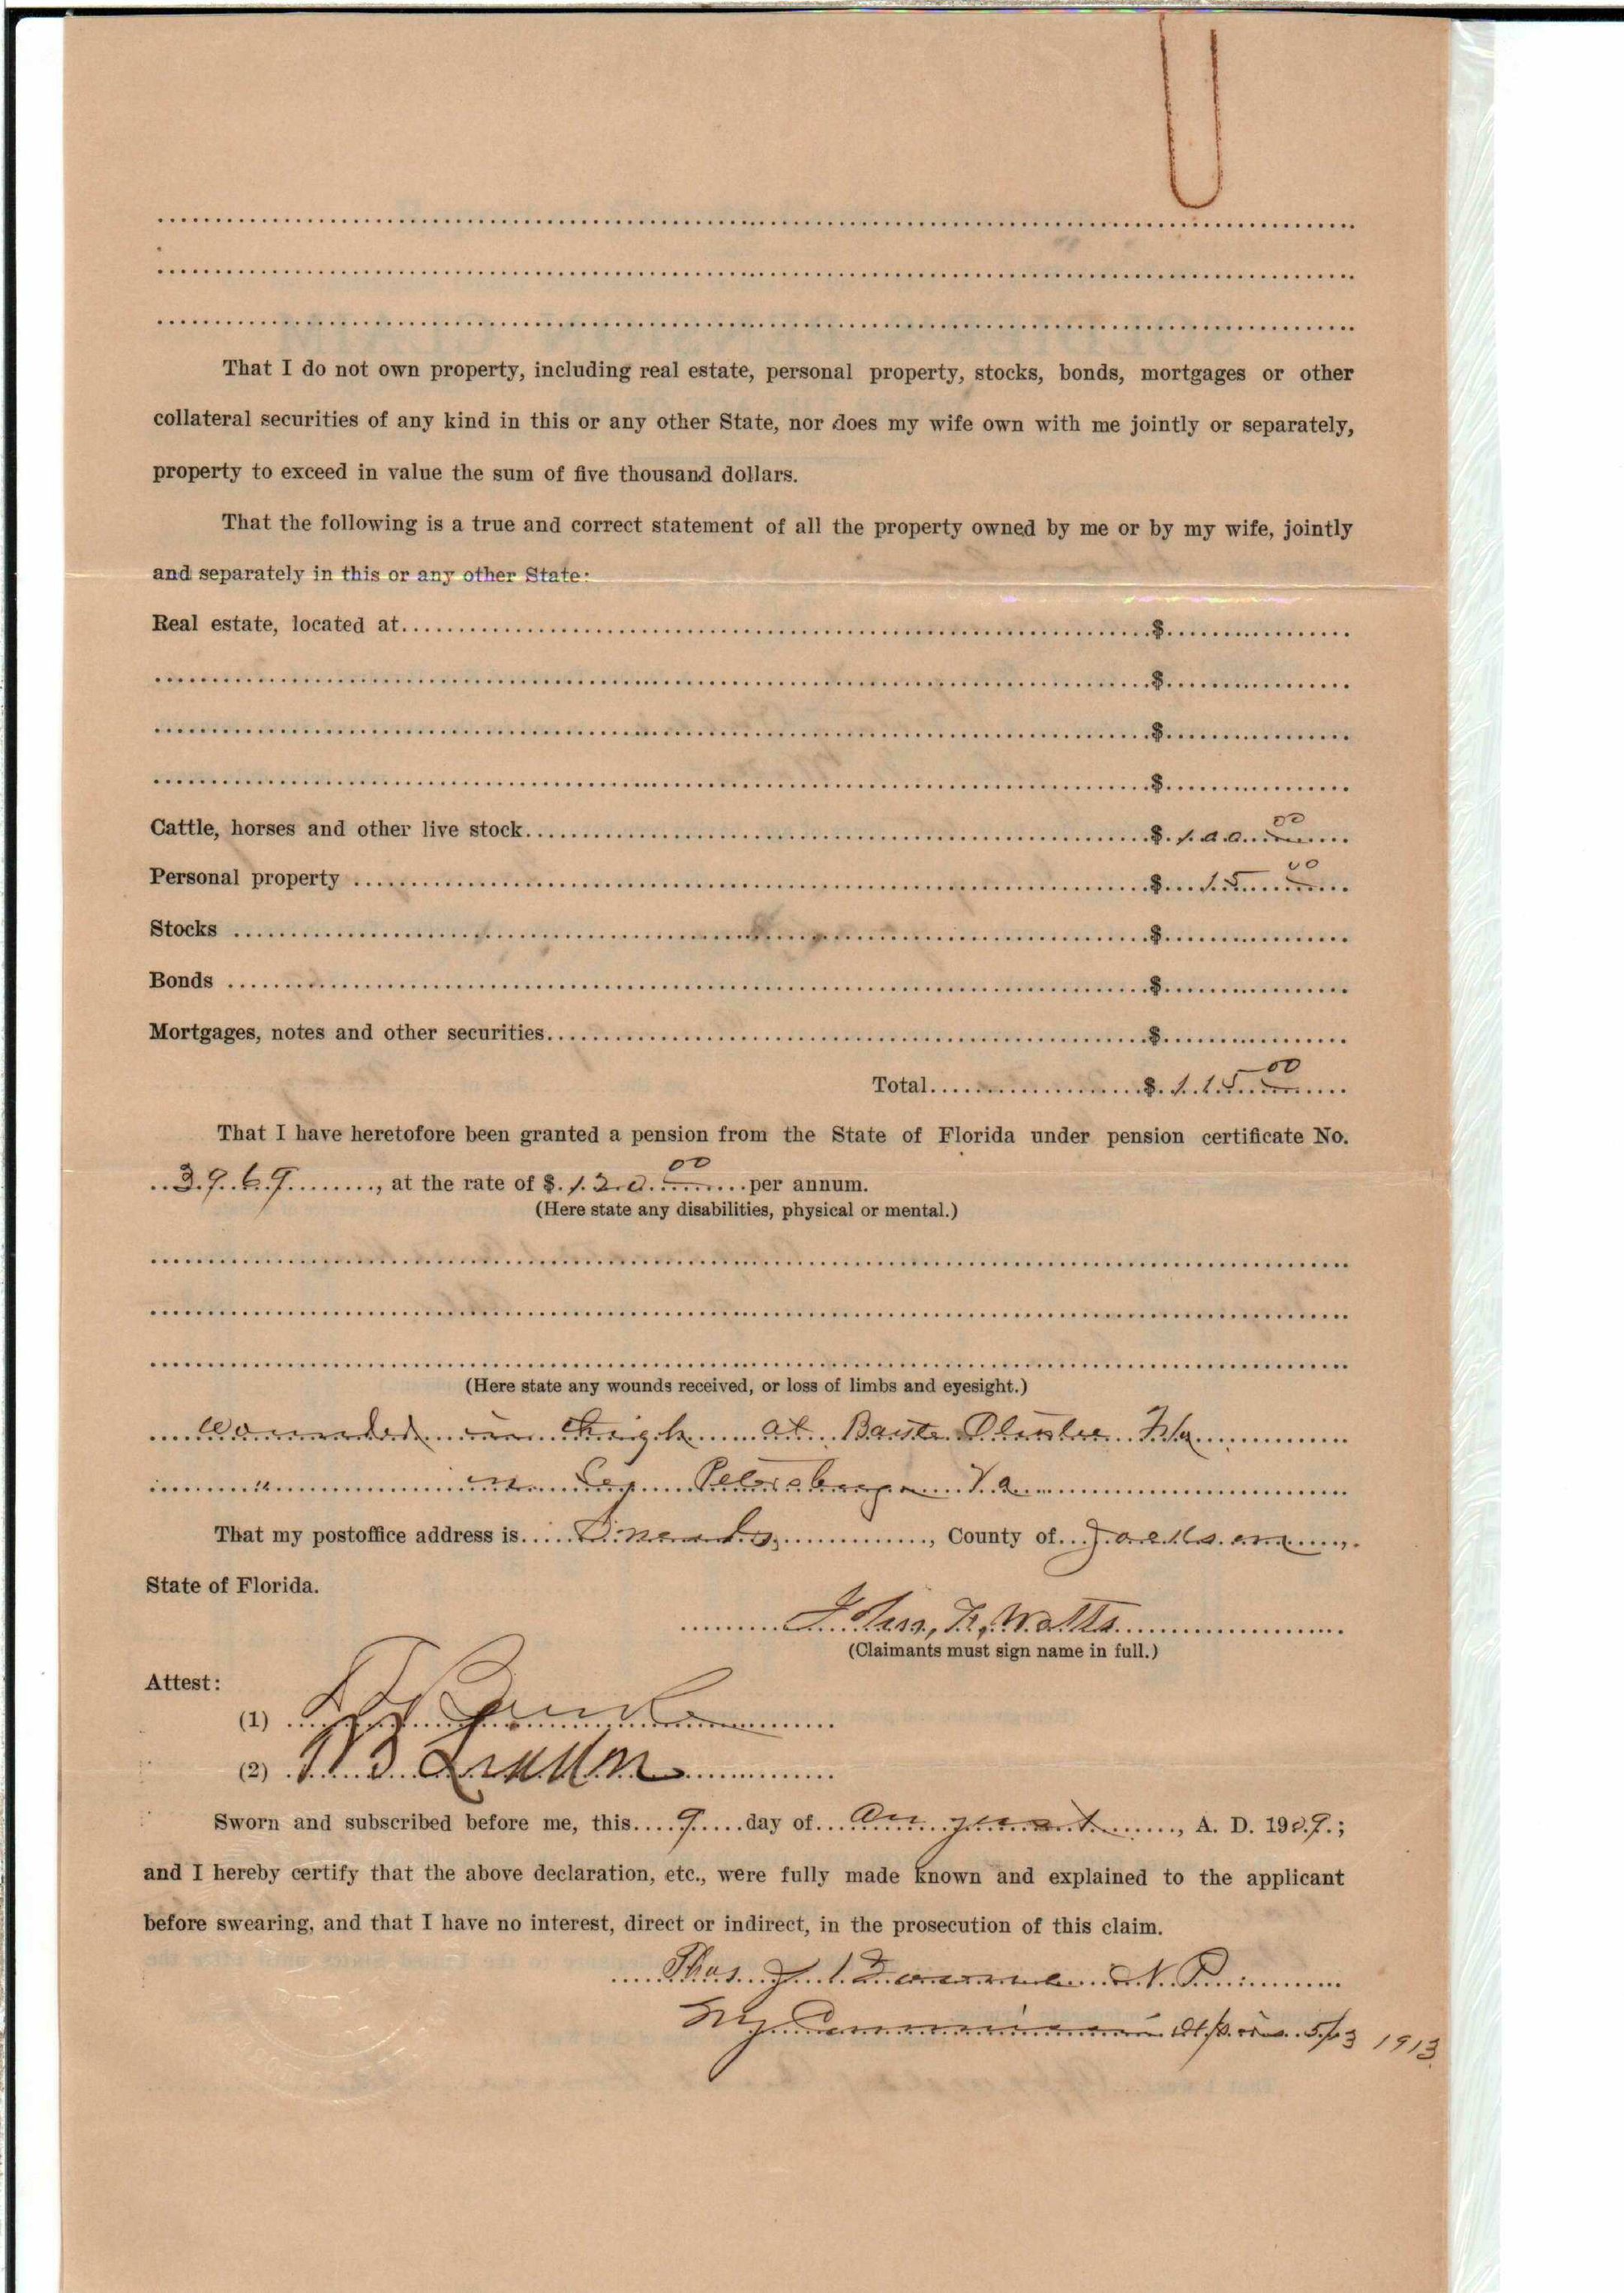 That I do not own property, including real estate, personal property, stocks, bonds, mortgages or other
collateral securities of any kind in this or any other State, nor does my wife own with me jointly or separately,
property to exceed in value the sum of five thousand dollars.
That the following is a true and correct statement of all the property owned by me or by my wife, jointly
and separately in this or any other State:
Real estate, located at $
$
$
$
Cattle, horses and other live stock $ 100 00
Personal property $ 15 00
Stocks $
Bonds $
Mortgages, notes and other securities $
Total $ 115 00
That I have heretofore been granted a pension from the State of Florida under pension certificate No.
3969, at the rate of $ 120 00 per annum.
(Here state any disabilities, physical or mental.)
(Here state any wounds received, or loss of limbs and eyesight.)
Wounded in thigh at Fla
" in Leg Petersburg Va
That my postoffice address is, County of Jackson,
State of Florida.
Watts
(Claimants must sign name in full.)
Attest:
(1)
(2)
Sworn and subscribed before me, this 9 day of August, A. D. 1909;
and I hereby certify that the above declaration, etc., were fully made known and explained to the applicant
before swearing, and that I have no interest, direct or indirect, in the prosecution of this claim.
Thos. N. P.
My Commission Expires 5/13 1913